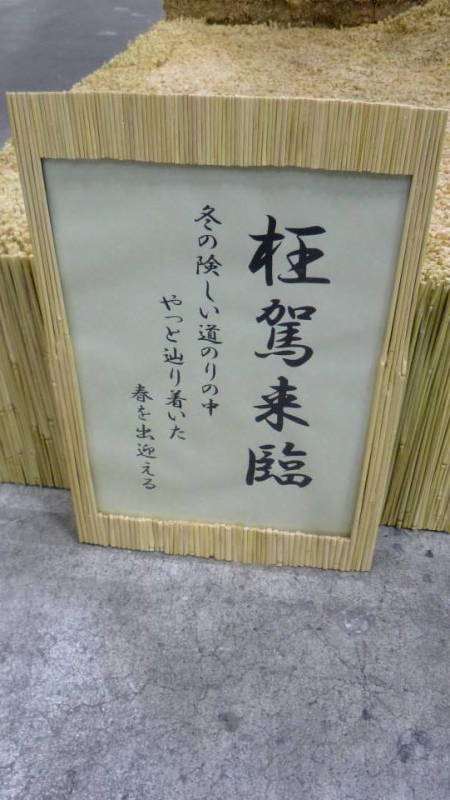 枉駕来臨
冬の険しい道のりの中
やっと辿り着いた
春を出迎える